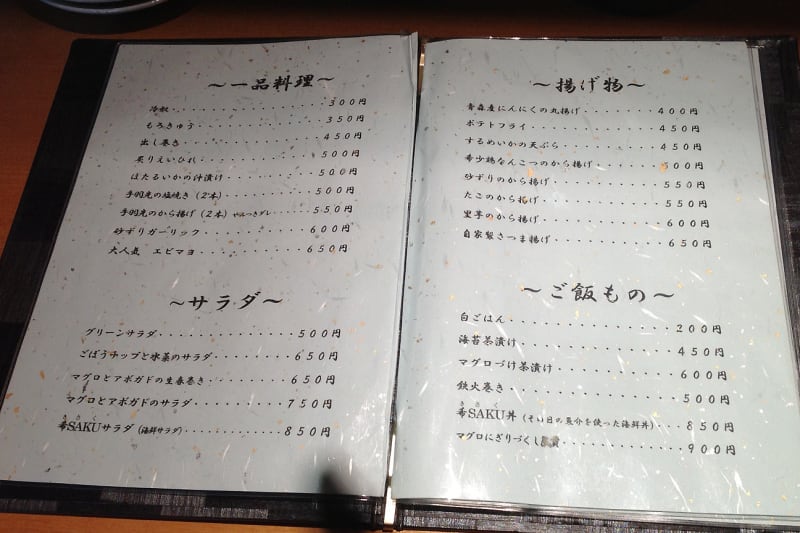 ～一品料理～
冷奴・・・・・・・・・・・・・・300円
もろきゅう・・・・・・・・・・・・350円
出し巻き・・・・・・・・・・・・・450円
炙りえいひれ・・・・・・・・・・・500円
ほたるいかの汁漬け・・・・・・・・500円
手羽先の塩焼き（2本）・・・・・・・500円
手羽先のから揚げ（2本）やみつきダレ・・・・550円
砂ずりガーリック・・・・・・・・・600円
大人気 エビマヨ・・・・・・・・・650円
～サラダ～
グリーンサラダ・・・・・・・・・・500円
ごぼうチップと水菜のサラダ・・・・・650円
マグロとアボガドの生春巻き・・・・・650円
マグロとアボガドのサラダ・・・・・・750円
きさく
希SAKUサラダ（海鮮サラダ）・・・・・850円
～揚げ物～
青森産にんにくの丸揚げ・・・・・・・400円
ポテトフライ・・・・・・・・・・・450円
するめいかの天ぷら・・・・・・・・450円
希少鶏なんこつのから揚げ・・・・・・500円
砂ずりのから揚げ・・・・・・・・・550円
たこのから揚げ・・・・・・・・・・550円
里芋のから揚げ・・・・・・・・・・600円
自家製さつま揚げ・・・・・・・・・650円
～ご飯もの～
白ごはん・・・・・・・・・・・・・200円
海苔茶漬け・・・・・・・・・・・・450円
マグロづけ茶漬け・・・・・・・・・600円
鉄火巻き・・・・・・・・・・・・・500円
きさく
希SAKU丼（そい日の気分を使った海鮮丼）・・・850円
マグロにぎりづくし・・・・・・・・900円